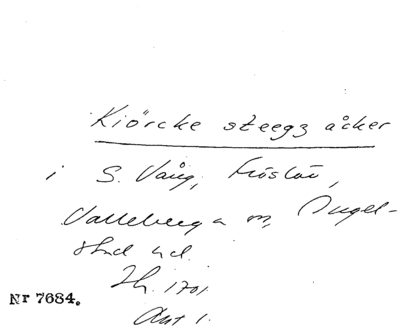 Kiörcke steegz åcker
i S. Vång, Fröslöv,
Valleberga sn, Ingel-
stad hd.
Jb. 1701
Akt 1.
Nr 7684.